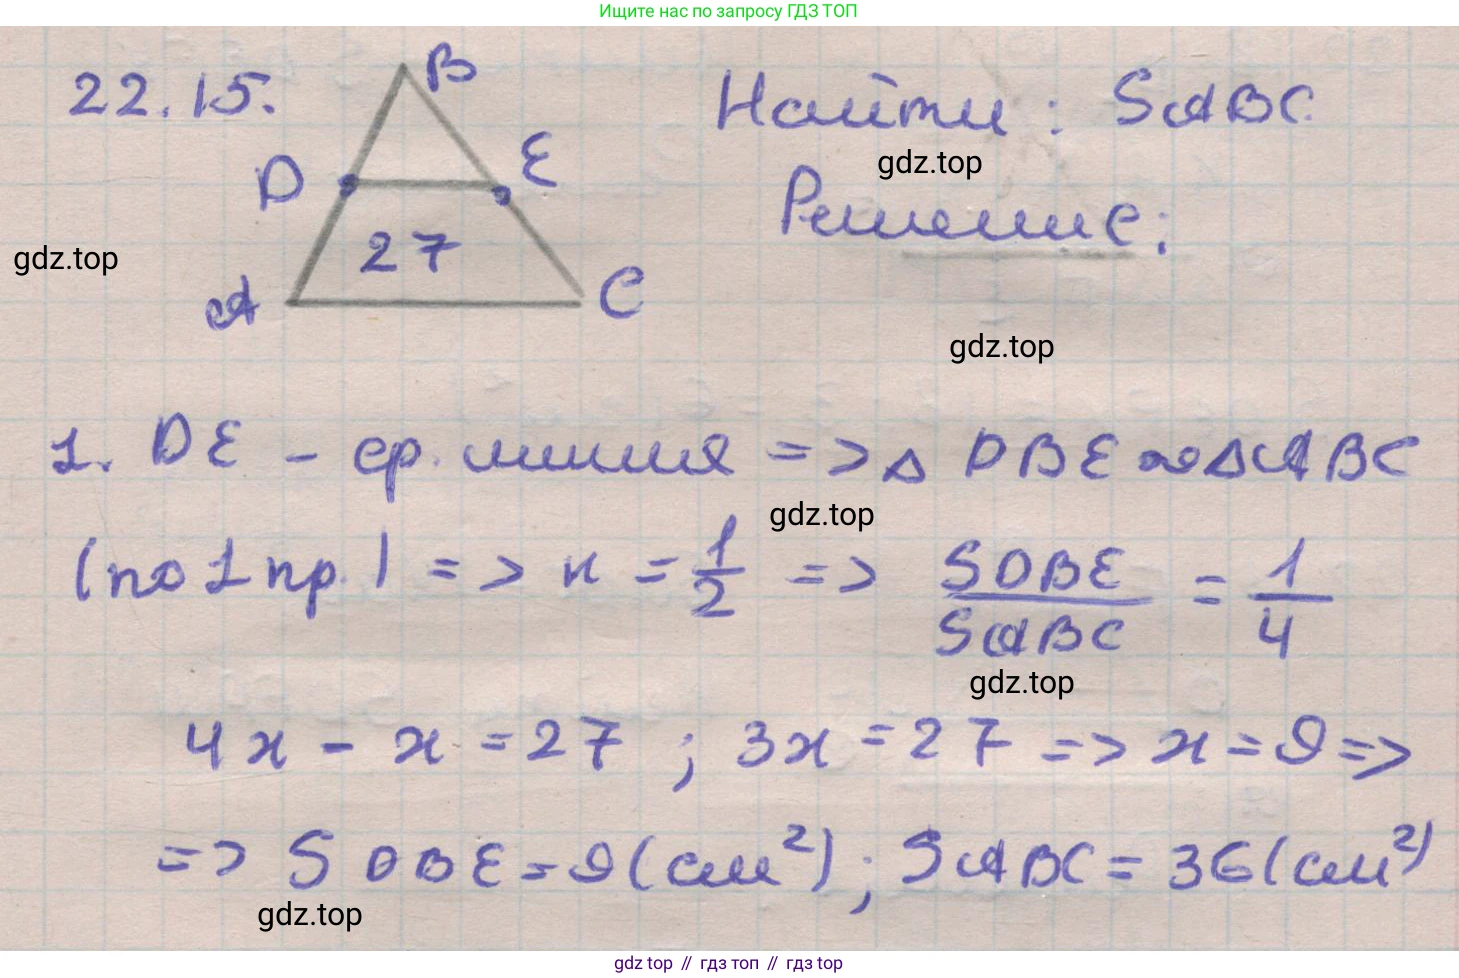 Ищите нас по запросу ГДЗ ТОП
22.15.
B
D
E
27
A
C
Найти: SABC.
gdz.top
Решение:
gdz.top
gdz.top
1. DE - ср. линия => △ DBE ∾ △ABC
gdz.top
(по 1 пр.) => к = 1/2 => SDBE/SABC = 1/4
gdz.top
4x - x = 27 ; 3x = 27 => x = 9 =>
=> S DBE = 9 (см²); SABC = 36 (см²)
gdz.top
gdz top // гдз топ // gdz top